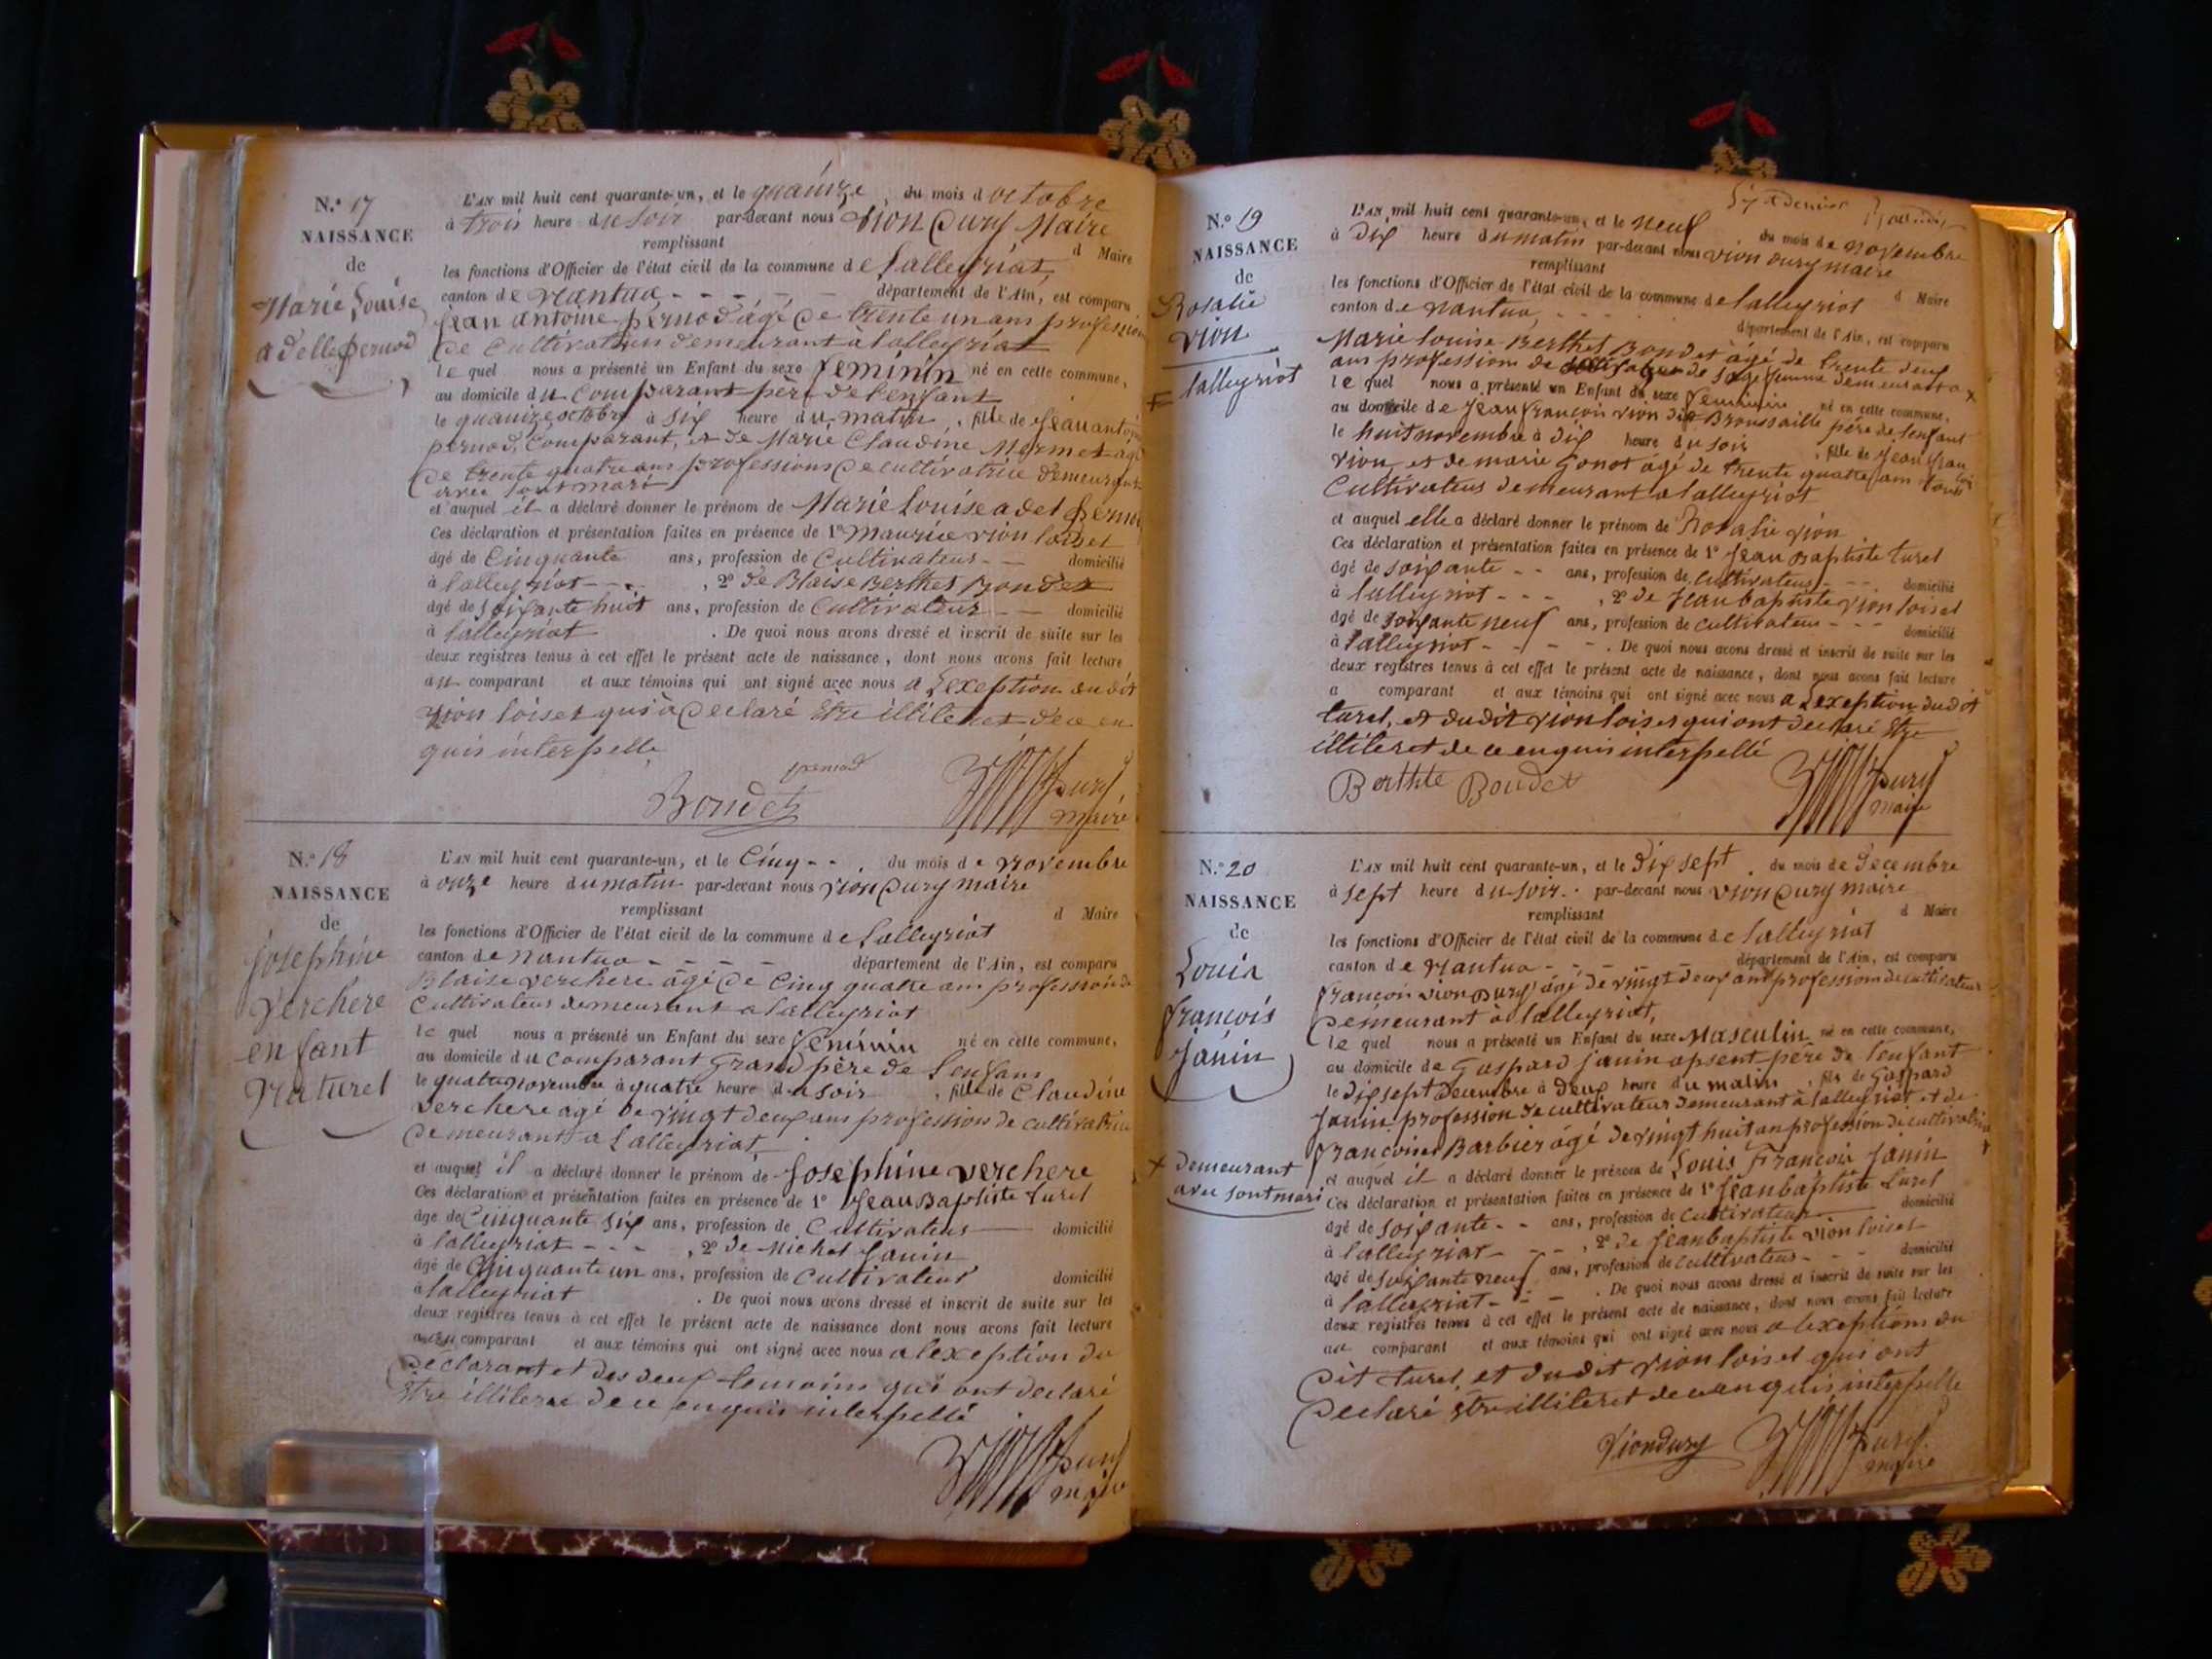 N.º 17
NAISSANCE
de
Marie Louise
adelle pernod
L'AN mil huit cent quarante-un, et le quainze, du mois d octobre
à trois heure du soir par-devant nous Vion Dury Maire
remplissant d Maire
les fonctions d'Officier de l'état civil de la commune de Lalleyriat
canton de Nantua - - - - - département de l'Ain, est comparu
Jean antoine pernod âgé de trente un ans profession
de cultivateur demeurant à lalleyriat
le quel nous a présenté un Enfant du sexe feminin né en cette commune,
au domicile du comparant père de l'enfant
le quainze octobre à six heure du matin, fille de Jean antoine
pernod, Comparant, et de Marie Claudine Mermet agé
de trente quatre ans professions de cultivatrice demeurant
avec sont mari
et auquel il a déclaré donner le prénom de Marie Louise adel pernod
Ces déclaration et présentation faites en présence de 1º Maurice vion loiset
âgé de Cinquante ans, profession de Cultivateur - - domicilié
à lalleyriat - - -, 2º de Blaise Berthet Bondet
âgé de soixante huit ans, profession de Cultivateur - - domicilié
à lalleyriat. De quoi nous avons dressé et inscrit de suite sur les
deux registres tenus à cet effet le présent acte de naissance, dont nous avons fait lecture
au comparant et aux témoins qui ont signé avec nous a Lexeption dudit
vion loiset qui à declaré être illiteret dece en
quis interpellé
pernod
Bondet
Dury
maire
N.º 18
NAISSANCE
de
josephine
Verchere
enfant
Naturel
L'AN mil huit cent quarante-un, et le Cinq - -. du mois de Novembre
à onze heure du matin par-devant nous vion Dury maire
remplissant d Maire
les fonctions d'Officier de l'état civil de la commune de lalleyriat
canton de Nantua - - - - département de l'Ain, est comparu
Blaise verchere âgé de Cinq quatre ans profession de
Cultivateur demeurant a lalleyriat
le quel nous a présenté un Enfant du sexe feminin né en cette commune,
au domicile du comparant Grand père de l'enfant
le quatre novembre à quatre heure du soir, fille de Claudine
verchere agé de vingt deux ans profession de cultivatrice
demeurant a lalleyriat
et auquel il a déclaré donner le prénom de Josephine verchere
Ces déclaration et présentation faites en présence de 1º Jean Baptiste turel
âgé de Cinquante six ans, profession de Cultivateur domicilié
à lalleyriat - - -, 2º de Michel Janin
âgé de Cinquante un ans, profession de Cultivateur domicilié
à lalleyriat. De quoi nous avons dressé et inscrit de suite sur les
deux registres tenus à cet effet le présent acte de naissance dont nous avons fait lecture
au comparant et aux témoins qui ont signé avec nous a lexeption du
declarant et des deux temoins qui ont declaré
être illiteret de ce enquis interpellé
Dury
maire
N.º 19
NAISSANCE
de
Rosalie
vion
lalleyriat
L'AN mil huit cent quarante-un, et le neuf du mois de novembre
à dix heure du matin par-devant nous vion dury maire
remplissant d Maire
les fonctions d'Officier de l'état civil de la commune de lalleyriat
canton de nantua, - - - département de l'Ain, est comparu
Marie louise Berthet Bondet âgé de trente deux
ans profession de sage femme demeurant a
le quel nous a présenté un Enfant du sexe feminin né en cette commune,
au domicile de Jean françois vion dit Broussaille père de lenfant
le huit novembre à dix heure du soir, fille de Jean fran
vion, et de marie Gonot âgé de trente quatre ans tous
Cultivateurs demeurant a lalleyriat
et auquel elle a déclaré donner le prénom de Rosalie vion
Ces déclaration et présentation faites en présence de 1º Jean Baptiste turel
âgé de soixante - - ans, profession de cultivateur - - - domicilié
à lalleyriat - - -, 2º de Jean baptiste vion loiset
âgé de soixante neuf ans, profession de cultivateur - - - domicilié
à lalleyriat - - - -. De quoi nous avons dressé et inscrit de suite sur les
deux registres tenus à cet effet le présent acte de naissance, dont nous avons fait lecture
a comparant et aux témoins qui ont signé avec nous a Lexeption dudit
turel, et dudit vion loiset qui ont declaré être
illiteret de ce enquis interpellé
Berthte Boudet
Dury
maire
N.º 20
NAISSANCE
de
Louis
françois
Janin
+ demeurant
avec sont mari
L'AN mil huit cent quarante-un, et le dix sept. du mois de decembre
à sept heure du soir. par-devant nous vion Dury maire
remplissant d Maire
les fonctions d'Officier de l'état civil de la commune de lalleyriat
canton de Nantua - - - - - département de l'Ain, est comparu
françois vion Dury âgé de vingt deux ans profession de cultivateur
demeurant à lalleyriat,
le quel nous a présenté un Enfant du sexe Masculin né en cette commune,
au domicile de Gaspard janin apsent père de l'enfant
le dix sept decembre à deux heure du matin, fils de Gaspard
Janin profession de cultivateur demeurant à lalleyriat et de
françoise Barbier âgé de vingt huit an profession de cultivatrice +
et auquel il a déclaré donner le prénom de Louis François Janin
Ces déclaration et présentation faites en présence de 1º Jean baptiste turel
âgé de soixante - - ans, profession de cultivateur domicilié
à lalleyriat - - -, 2º de Jean baptiste vion loiset
âgé de soixante neuf ans, profession de cultivateur - - - domicilié
à lalleyriat - - -. De quoi nous avons dressé et inscrit de suite sur les
deux registres tenus à cet effet le présent acte de naissance, dont nous avons fait lecture
au comparant et aux témoins qui ont signé avec nous a lexeptions du
dit turel, et dudit vion loiset qui ont
declaré être illiteret de ce enquis interpellé
Viondury
Dury
maire